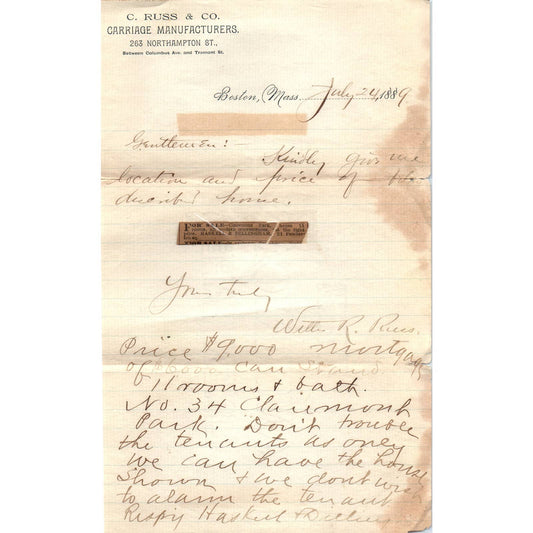 C. RUSS & CO.
CARRIAGE MANUFACTURERS,
263 NORTHAMPTON ST.,
Between Columbus Ave. and Tremont St.
Boston, Mass. July 24, 1889
Gentlemen:-
Kindly give me
location and price of
described home.
FOR SALE-Claremont Park, house 11
HASKELL & DILLINGHAM,
Yours truly
R. Russ.
Price $9,000 mortgage
of $6000 can stand.
11 rooms & bath.
No. 34 Claremont
Park. Don't trouble
the tenants as only
we can have the house
shown & we dont wish
to alarm the tenant
Respy Haskell &